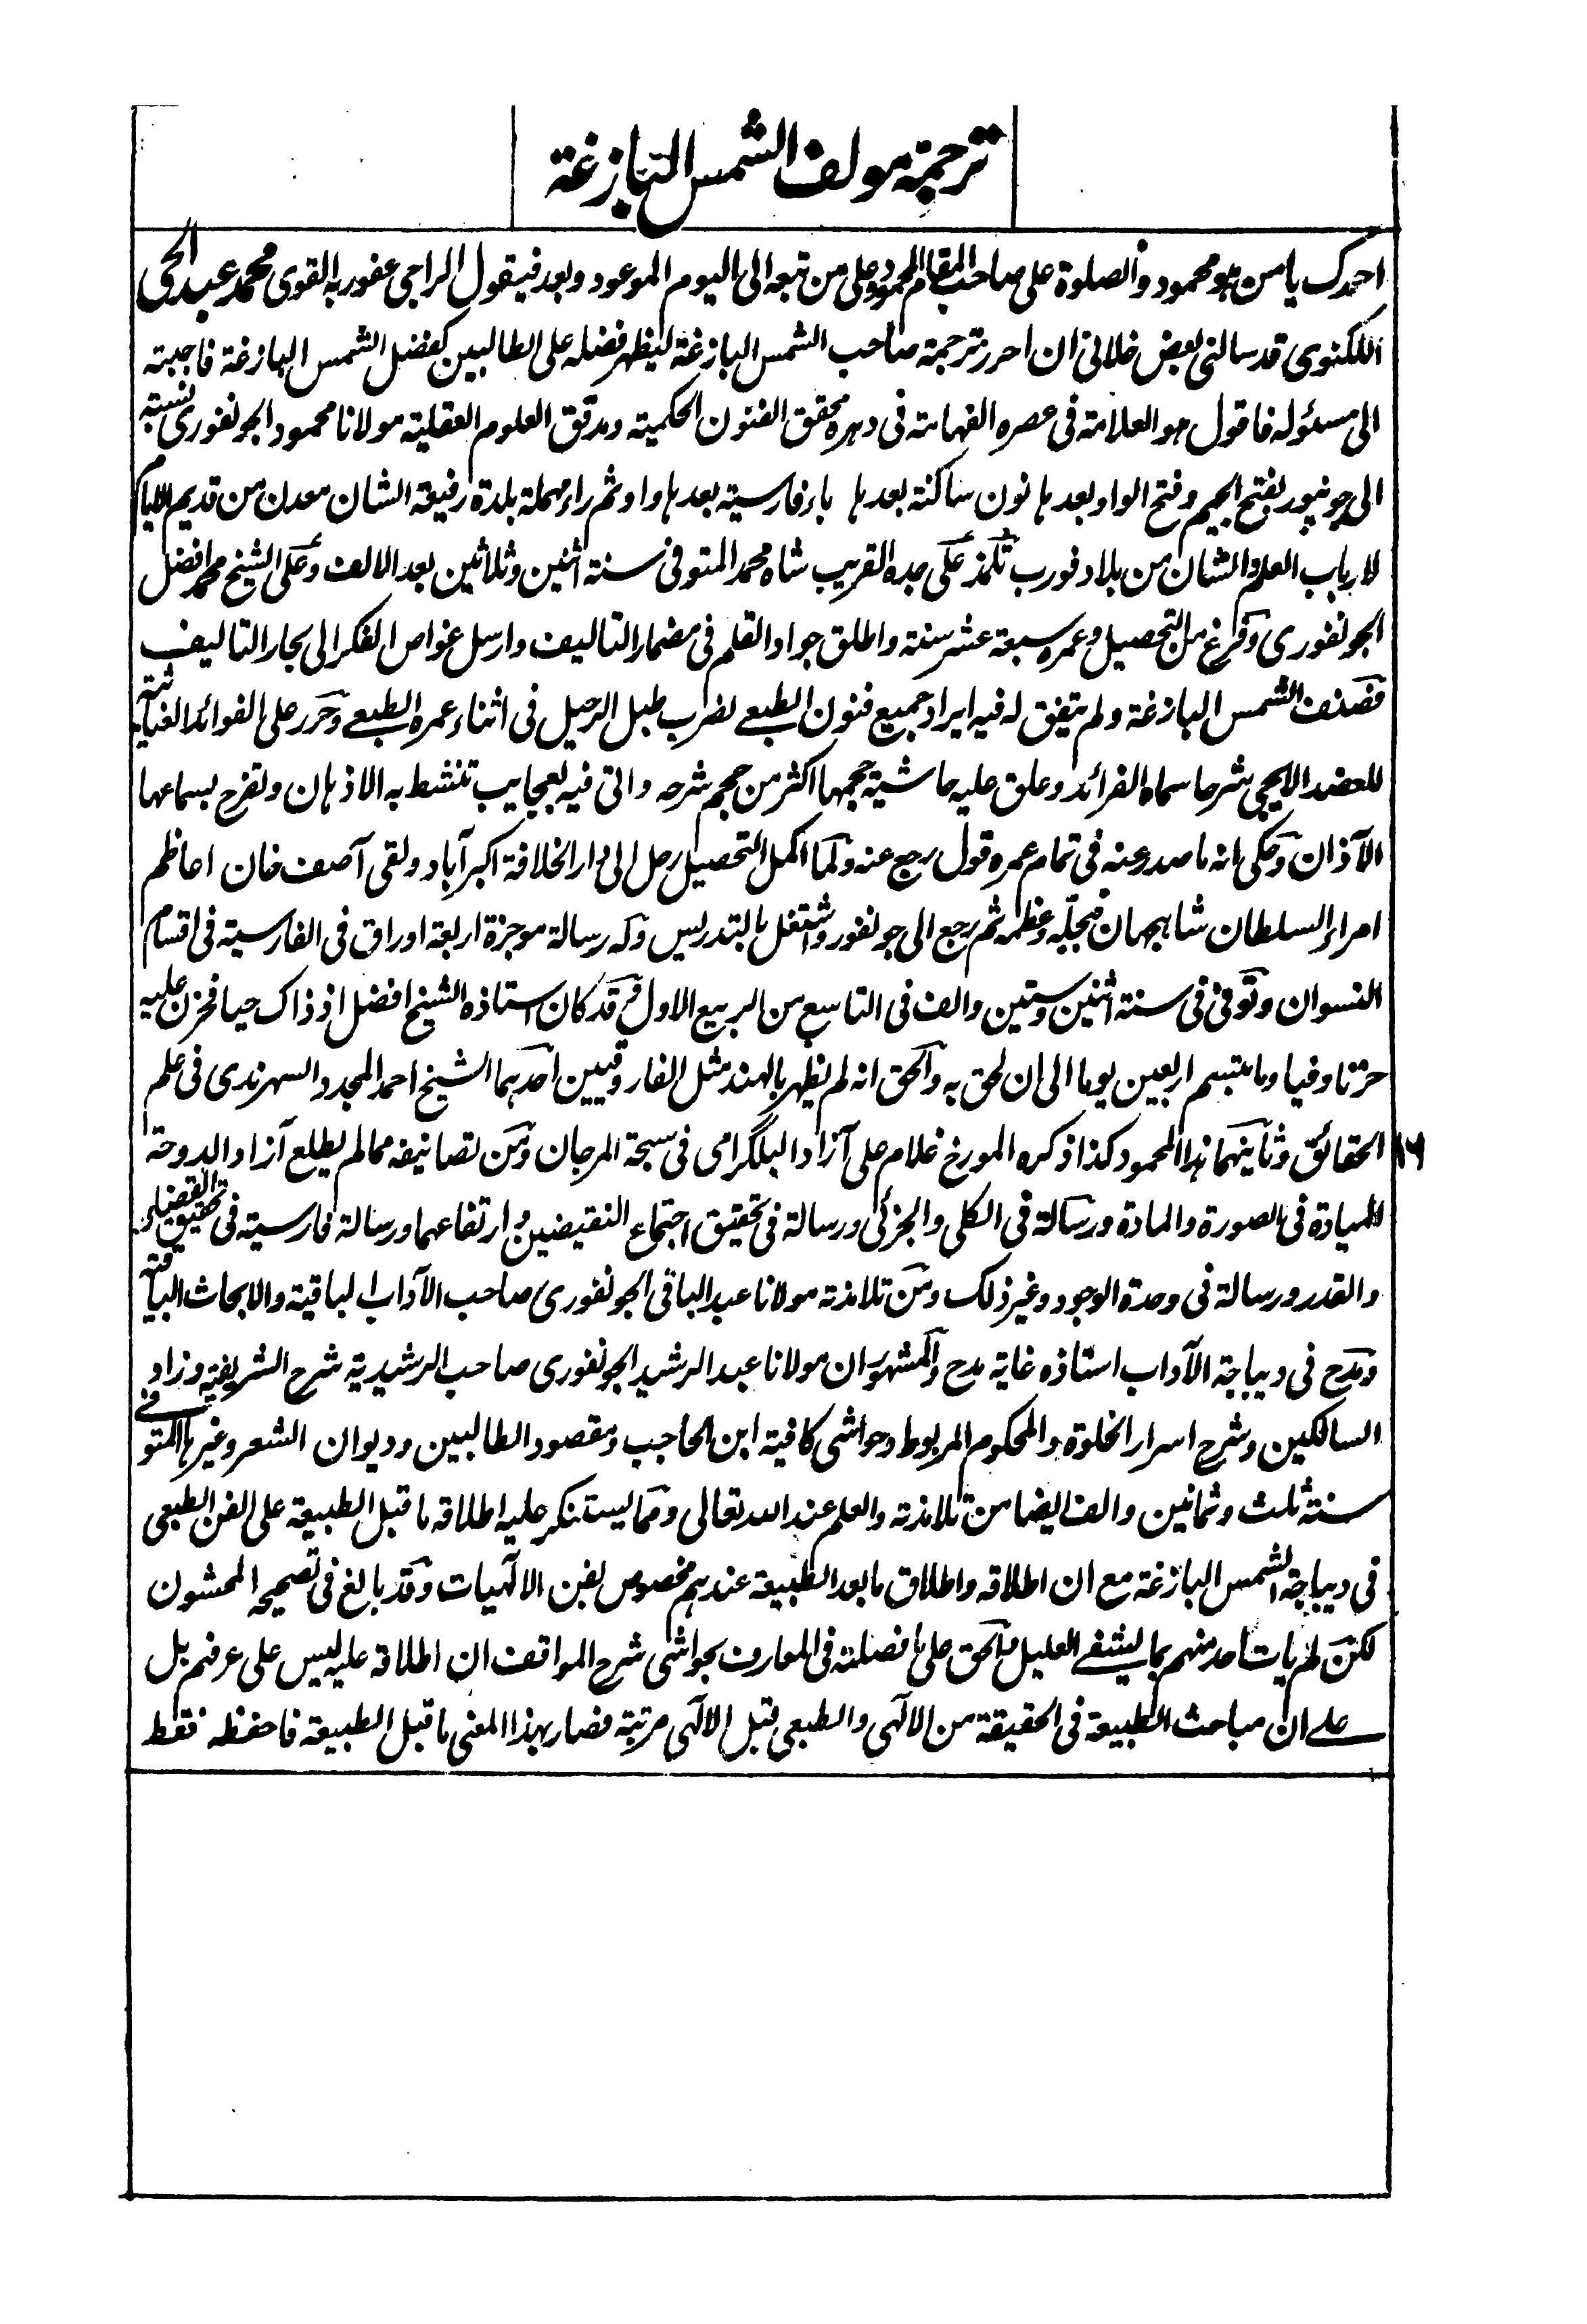 ترجمة مولف الشمس البازغة
احمدک یا من هو محمود والصلوة علی صاحب المقام المحمود وعلی من تبعه الی الیوم الموعود وبعد فیقول الراجی عفو ربه القوی محمد عبد الحی
اللکنوی قد سالنی بعض خلانی ان احرر ترجمة صاحب الشمس البازغة لیظهر فضله علی الطالبین کفضل الشمس البازغة فاجبته
الی مسئوله فاقول هو العلامة فی عصره الفهامة فی دهره محقق الفنون الحکمیة ومدقق العلوم العقلیة مولانا محمود الجونفوری نسبته
الی جونپور بفتح الجیم وفتح الواو بعدها نون ساکنة بعدها باء فارسیة بعدها واو ثم راء مهملة بلدة رفیعة الشان معدن من قدیم الایام
لارباب العلم والشان من بلاد فورب تلمذ علی جده القریب شاه محمد المتوفی سنة اثنین وثلاثین بعد الالف وعلی الشیخ محمد افضل
الجونفوری وفرغ من التحصیل وعمره سبعة عشر سنة واطلق جواد القلم فی مضمار التالیف وارسل غواص الفکر الی بحار التالیف
فصنف الشمس البازغة ولم یتفق له فیه ایراد جمیع فنون الطبعی لضرب طبل الرحیل فی اثناء عمره الطبعی وحرر علی الفوائد الغیاثیة
للعضد الایجی شرحا سماه الفرائد وعلق علیه حاشیة حجمها اکثر من حجم شرحه واتی فیه بعجایب تنشط به الاذهان وتفرح بسماعها
الآذان وحکی انه ما صدر عنه فی تمام عمره قول رجع عنه ولما اکمل التحصیل رحل الی دار الخلافة اکبرآباد ولقی آصف خان اعاظم
امراء السلطان شاهجهان فبجّله وعظمه ثم رجع الی جونفور واشتغل بالتدریس وله رسالة موجزة اربعة اوراق فی الفارسیة فی اقسام
النسوان وتوفی فی سنة اثنین وستین والف فی التاسع من الربیع الاول وقد کان استاذه الشیخ افضل اذ ذاک حیا فحزن علیه
حزنا وفیا وما تبسم اربعین یوما الی ان لحق به والحق انه لم یظهر بالهند مثل الفاروقیین احدهما الشیخ احمد المجدد السهرندی فی علم
الحقائق وثانیهما هذا المحمود کذا ذکره المورخ غلام علی آزاد البلگرامی فی سبحة المرجان ومن تصانیفه مما لم یطلع آزاد الدوحة ۱۶
المیادة فی الصورة والمادة ورسالة فی الکلی والجزئی ورسالة فی تحقیق اجتماع النقیضین وارتفاعهما ورسالة فارسیة فی تحقیق القضاء
والقدر ورسالة فی وحدة الوجود وغیر ذلک ومن تلامذته مولانا عبد الباقی الجونفوری صاحب الآداب الباقیة والابحاث الباقیة
ومدح فی دیباجة الآداب استاذه غایة مدح والمشهور ان مولانا عبد الرشید الجونفوری صاحب الرشیدیة شرح الشریفیة وزاد
السالکین وشرح اسرار الخلوة والمحکوم المربوط وحواشی کافیة ابن الحاجب ومقصود الطالبین ودیوان الشعر وغیرها المتوفی
سنة ثلث وثمانین والف ایضا من تلامذته والعلم عند الله تعالی ومما یستنکر علیه اطلاقه ما قبل الطبیعة علی الفن الطبعی
فی دیباجة الشمس البازغة مع ان اطلاقه واطلاق ما بعد الطبیعة عندهم مخصوص بفن الالٰهیات وقد بالغ فی تصحیحه المحشون
لکن لم یات احد منهم بما یشفی العلیل والحق علی ما فصلته فی المعارف بحواشی شرح المواقف ان اطلاقه علیه لیس علی عرفهم بل
علی ان مباحث الطبیعة فی الحقیقة من الالٰهی والطبعی قبل الالٰهی مرتبة فصار بهذا المعنی ما قبل الطبیعة فاحفظه فقط